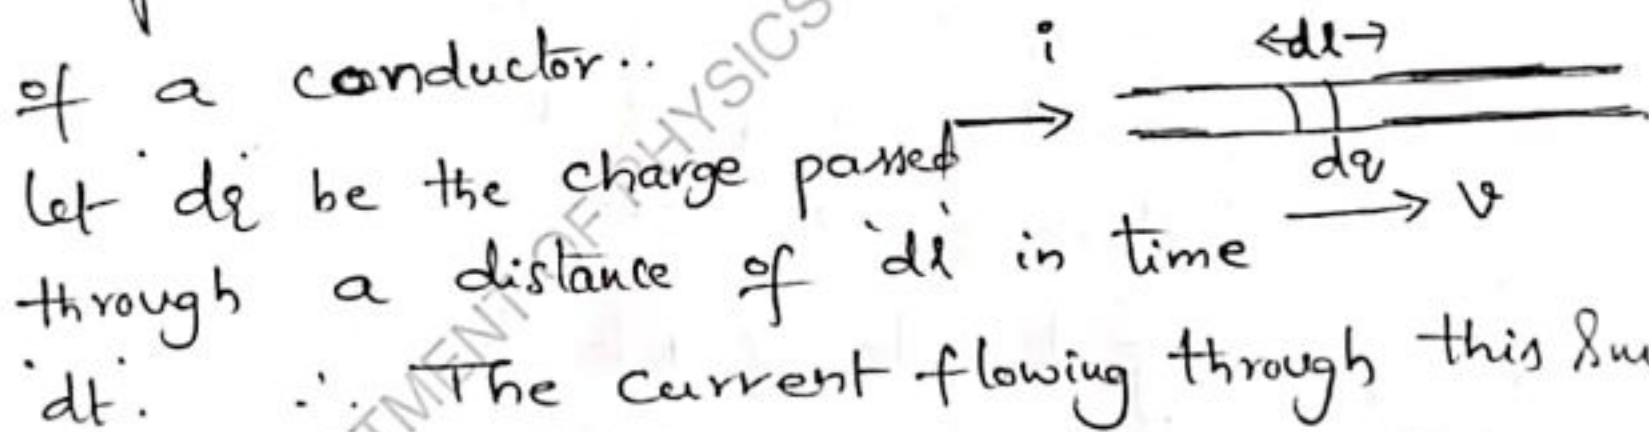 of a conductor..
i
<dl→
let 'dq' be the charge passed
dq
v
through a distance of 'dl' in time
'dt'. ∴ The current flowing through this
DEPARTMENT OF PHYSICS